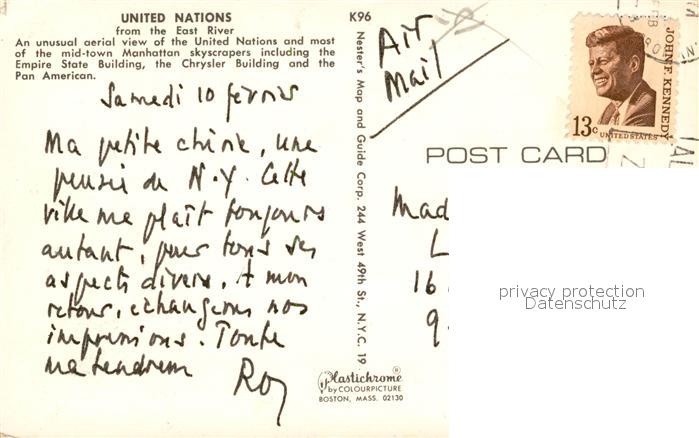 UNITED NATIONS
from the East River
An unusual aerial view of the United Nations and most
of the mid-town Manhattan skyscrapers including the
Empire State Building, the Chrysler Building and the
Pan American.
Samedi 10 février
Ma petite chérie, une
pensée de N.Y. Cette
ville me plaît toujours
autant, pour tous ses
aspects divers. A mon
retour, échangeons nos
impressions. Toute
ma tendresse
Roy
K96
Nester's Map and Guide Corp. 244 West 49th St., N.Y.C. 19
Plastichrome ®
by COLOURPICTURE
BOSTON, MASS. 02130
Air
Mail
POST CARD
JOHN F. KENNEDY
13c UNITED STATES
FEB
Mad
L
16
9
privacy protection
Datenschutz